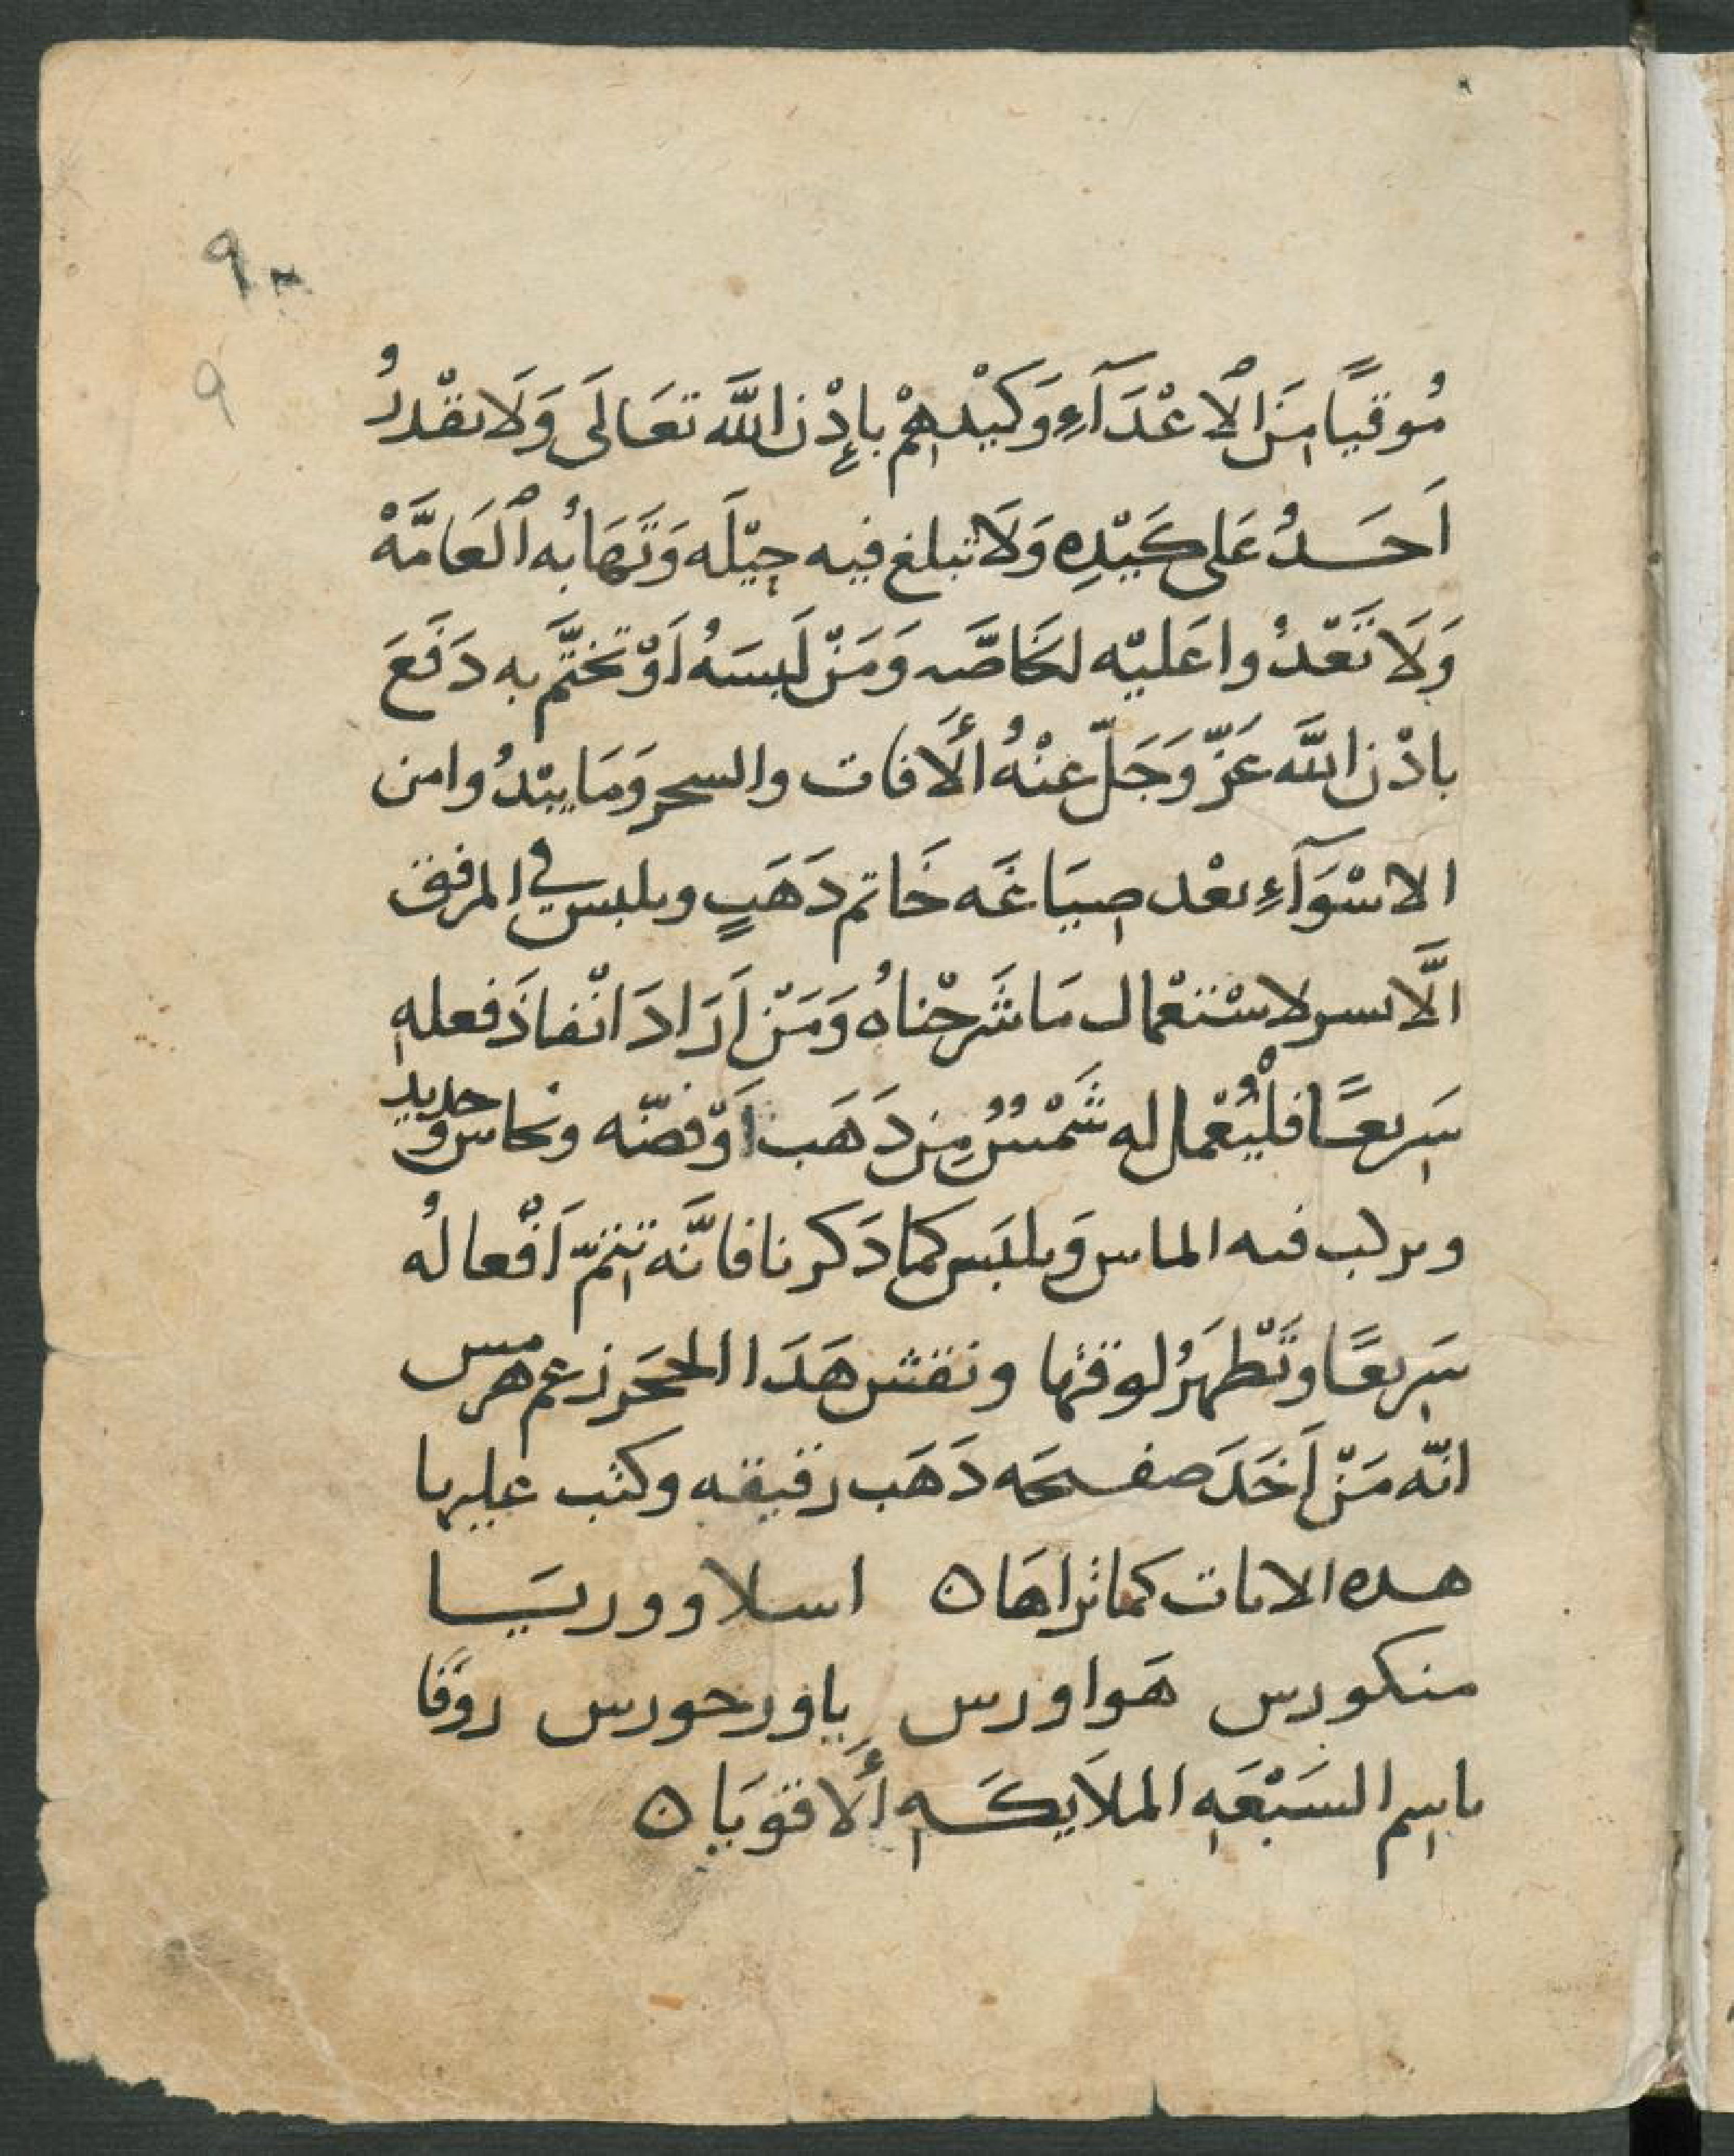 ٩
٩
مُوقيًا مَنَ الاعْدَآءِ وَكَيْدهِمْ بإِذْن اللَّه تعَالَى وَلَا يقْدرُ
اَحَدُ عَلى كَيْدِه وَلَا تبلغ فيه حِيْلَه وَتَهَابُه العَامَّهْ
وَلَا تَعْدُوا عَليْه الخَاصَّه وَمَنْ لَبسَهُ اَوْ تختَّم به دَفَعَ
باذْن اللَّه عَزّ وَجَلّ عنْهُ الأَافات والسحر وَمَا يبْدُوا من
الاسْوَآءِ بعْد صِيَاغَه خَاتم دَهَبٍ ويلبس في المرفق
الَّايسر لاسْتعْمال مَا شَرحْناهُ وَمَنْ اَرَادَ انْفاذَ فعلهِ
سَرِيعًا فلْيُعْمال له شَمْسُ مِن دَهَب اَوْ فضّه ونحاس وَحديد
ويركب فيه الماس وَيلبَس كما دَكرنا فانَّه تتمّ اَفْعالهُ
سَرِيعًا وَتَظهَرُ لوقتها ونقش هَدَا الحجَر زعم هرمس
انّه مَنْ اَخَدَ صفحَه دَهَب رقيقه وكتب عليها
هده الايات كما تراهَا ه اسلا وور يسَا
منكورس هَواورس ياورحورس روَفا
باسِم السَبْعَهِ الملَايكَهِ الأَقوَيا ه